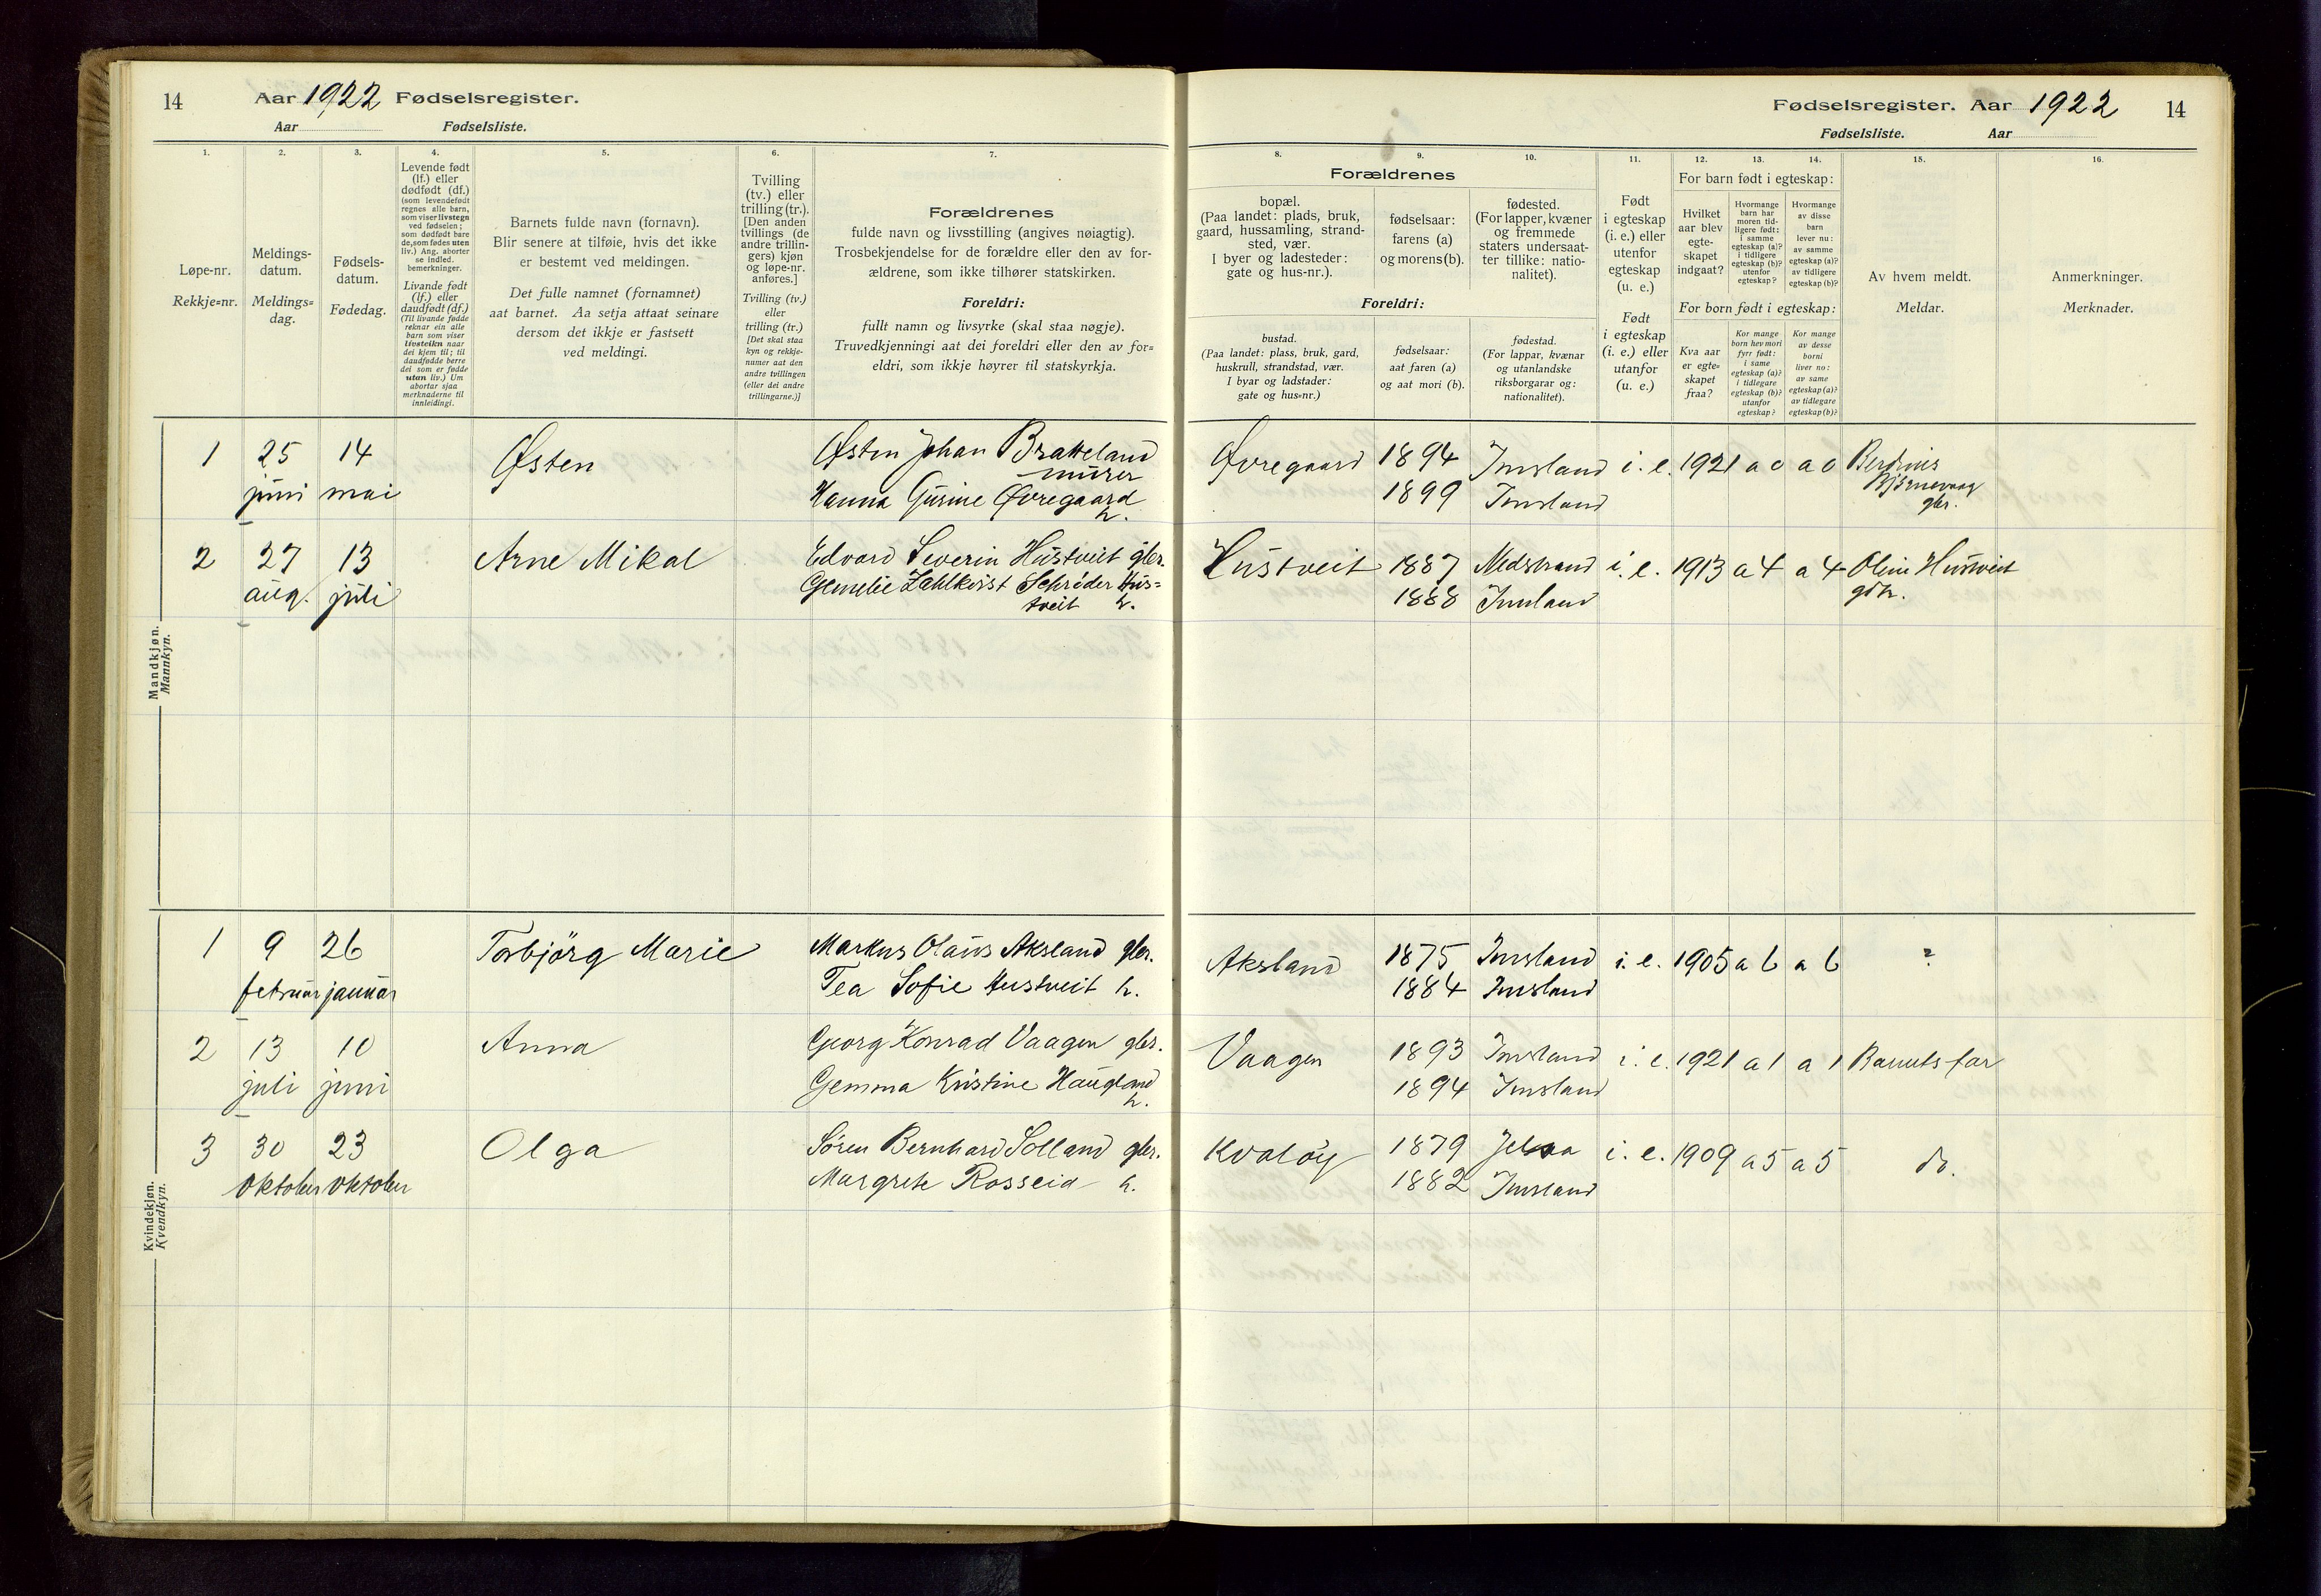 14 Aar 1922 Fødselsregister.
Aar Fødselsliste.
1. 2. 3. 4. 5. 6. 7.
Løpe-nr.
Rekkje=nr.
Meldings-
datum.
Meldings=
dag.
Fødsels-
datum.
Fødedag.
Levende født
(lf.) eller
dødfødt (df.)
(som levendefødt
regnes alle barn,
som viser livstegn
ved fødselen;
som dødfødt bare
de, som fødes uten
liv.) Ang. aborter
se indled.
bemerkninger.
Livande født
(lf.) eller
daudfødt (df.)
(Til livande fødde
reknar ein alle
barn som viser
livsteikn naar
dei kjem til; til
daudfødde berre
dei som er fødde
utan liv.) Um
abortar sjaa
merknaderne til
innleidingi.
Barnets fulde navn (fornavn).
Blir senere at tilføie, hvis det ikke
er bestemt ved meldingen.
Det fulle namnet (fornamnet)
aat barnet. Aa setja attaat seinare
dersom det ikkje er fastsett
ved meldingi.
Tvilling
(tv.) eller
trilling (tr.).
[Den anden
tvillings (de
andre trillin-
gers) kjøn
og løpe-nr.
anføres.]
Tvilling (tv.)
eller
trilling (tr.)
[Det skal staa
kyn og rekkje-
numer aat den
andre tvillingen
(eller dei andre
trillingarne.)]
Forældrenes
fulde navn og livsstilling (angives nøiagtig).
Trosbekjendelse for de forældre eller den av for-
ældrene, som ikke tilhører statskirken.
Foreldri:
fullt namn og livsyrke (skal staa nøgje).
Truvedkjenningi aat dei foreldri eller den av for=
eldri, som ikkje høyrer til statskyrkja.
Mandkjøn.
Mannkyn.
1 25 14 Østen Østen Johan Bratteland
murer
juni mai Hanna Gurine Øvregaard
h.
2 27 13 Arne Mikal Edvard Severin Hustveit gbr.
aug. juli Schrøder Hus=
tveit h.
Kvindekjøn.
Kvendkyn.
1 9 26 Torbjörg Marie Markus Olaus Aksland gbr.
februar januar Tea Sofie Hustveit h.
2 13 10 Anna Georg Konrad Vaagen gbr.
juli juni Gemma Kristine Haugland
h.
3 30 23 Olga Søren Bernhard Solland gbr.
oktober oktober Margrete Rosseid h.
Fødselsregister. Aar 1922 14
Fødselsliste. Aar
8. 9. 10. 11. 12. 13. 14. 15. 16.
Forældrenes
bopæl.
(Paa landet: plads, bruk,
gaard, hussamling, strand-
sted, vær.
I byer og ladesteder:
gate og hus-nr.).
fødselsaar:
farens (a)
og morens (b).
fødested.
(For lapper, kvæner
og fremmede
staters undersaat-
ter tillike: natio-
nalitet).
Foreldri:
bustad.
(Paa landet: plass, bruk, gard,
huskrull, strandstad, vær.
I byar og ladstader:
gate og hus=nr.)
fødselsaar:
aat faren (a)
og aat mori (b).
fødestad.
(For lappar, kvænar
og utanlandske
riksborgarar og:
nationalitet).
Født
i egteskap
(i. e.) eller
utenfor
egteskap
(u. e.)
Født
i egteskap
(i. e.) eller
utanfor
(u. e.)
For barn født i egteskap:
Hvilket
aar blev
egte-
skapet
indgaat?
Hvormange
barn har
moren tid-
ligere født:
i samme
egteskap (a)?
i tidligere
egteskap (b)?
utenfor
egteskap?
Hvormange
av disse
barn
lever nu:
av samme
egteskap (a)?
av tidligere
egteskap (b)?
For born født i egteskap:
Kva aar
er egte=
skapet
fraa?
Kor mange
born hev mori
fyrr født:
i same
egteskap (a)?
i tidlegare
egteskap (b)?
utanfor
egteskap?
Kor mange
av desse
borni
liver no:
av same
egteskap (a)?
av tidlegare
egteskap (b)?
Av hvem meldt.
Meldar.
Anmerkninger.
Merknader.
Øvregaard 1894 Imsland i. e. 1921 a 0 a 0 Berdines
Bjørnevaag
1899 Imsland gbr.
Hustveit 1887 Nedstrand i. e. 1913 a 4 a 4 Oline Hustveit
1888 Imsland
Aksland 1875 Imsland i. e. 1905 a 6 a 6 ?
1884 Imsland
Vaagen 1893 Imsland i. e. 1921 a 1 a 1 Barnets far
1894 Imsland
Kvaløy 1879 Jelsa i. e. 1909 a 5 a 5 do.
1882 Imsland